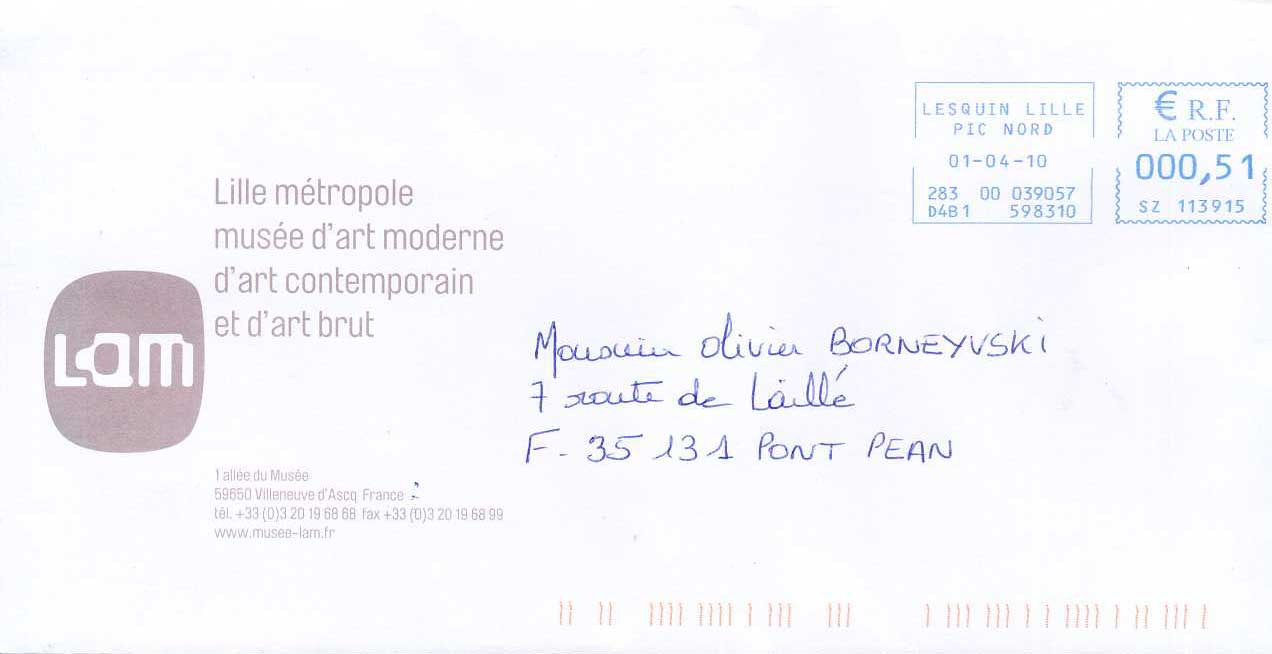 LESQUIN LILLE
PIC NORD
01-04-10
283 00 039057
D4B1 598310
€ R.F.
LA POSTE
000,51
SZ 113915
Lille métropole
musée d'art moderne
d'art contemporain
et d'art brut
Lam
Monsieur Olivier BORNEYVSKI
7 route de Laillé
F. 35 131 PONT PEAN
1 allée du Musée
59650 Villeneuve d'Ascq France
tél. +33 (0)3 20 19 68 68 fax +33 (0)3 20 19 68 99
www.musee-lam.fr